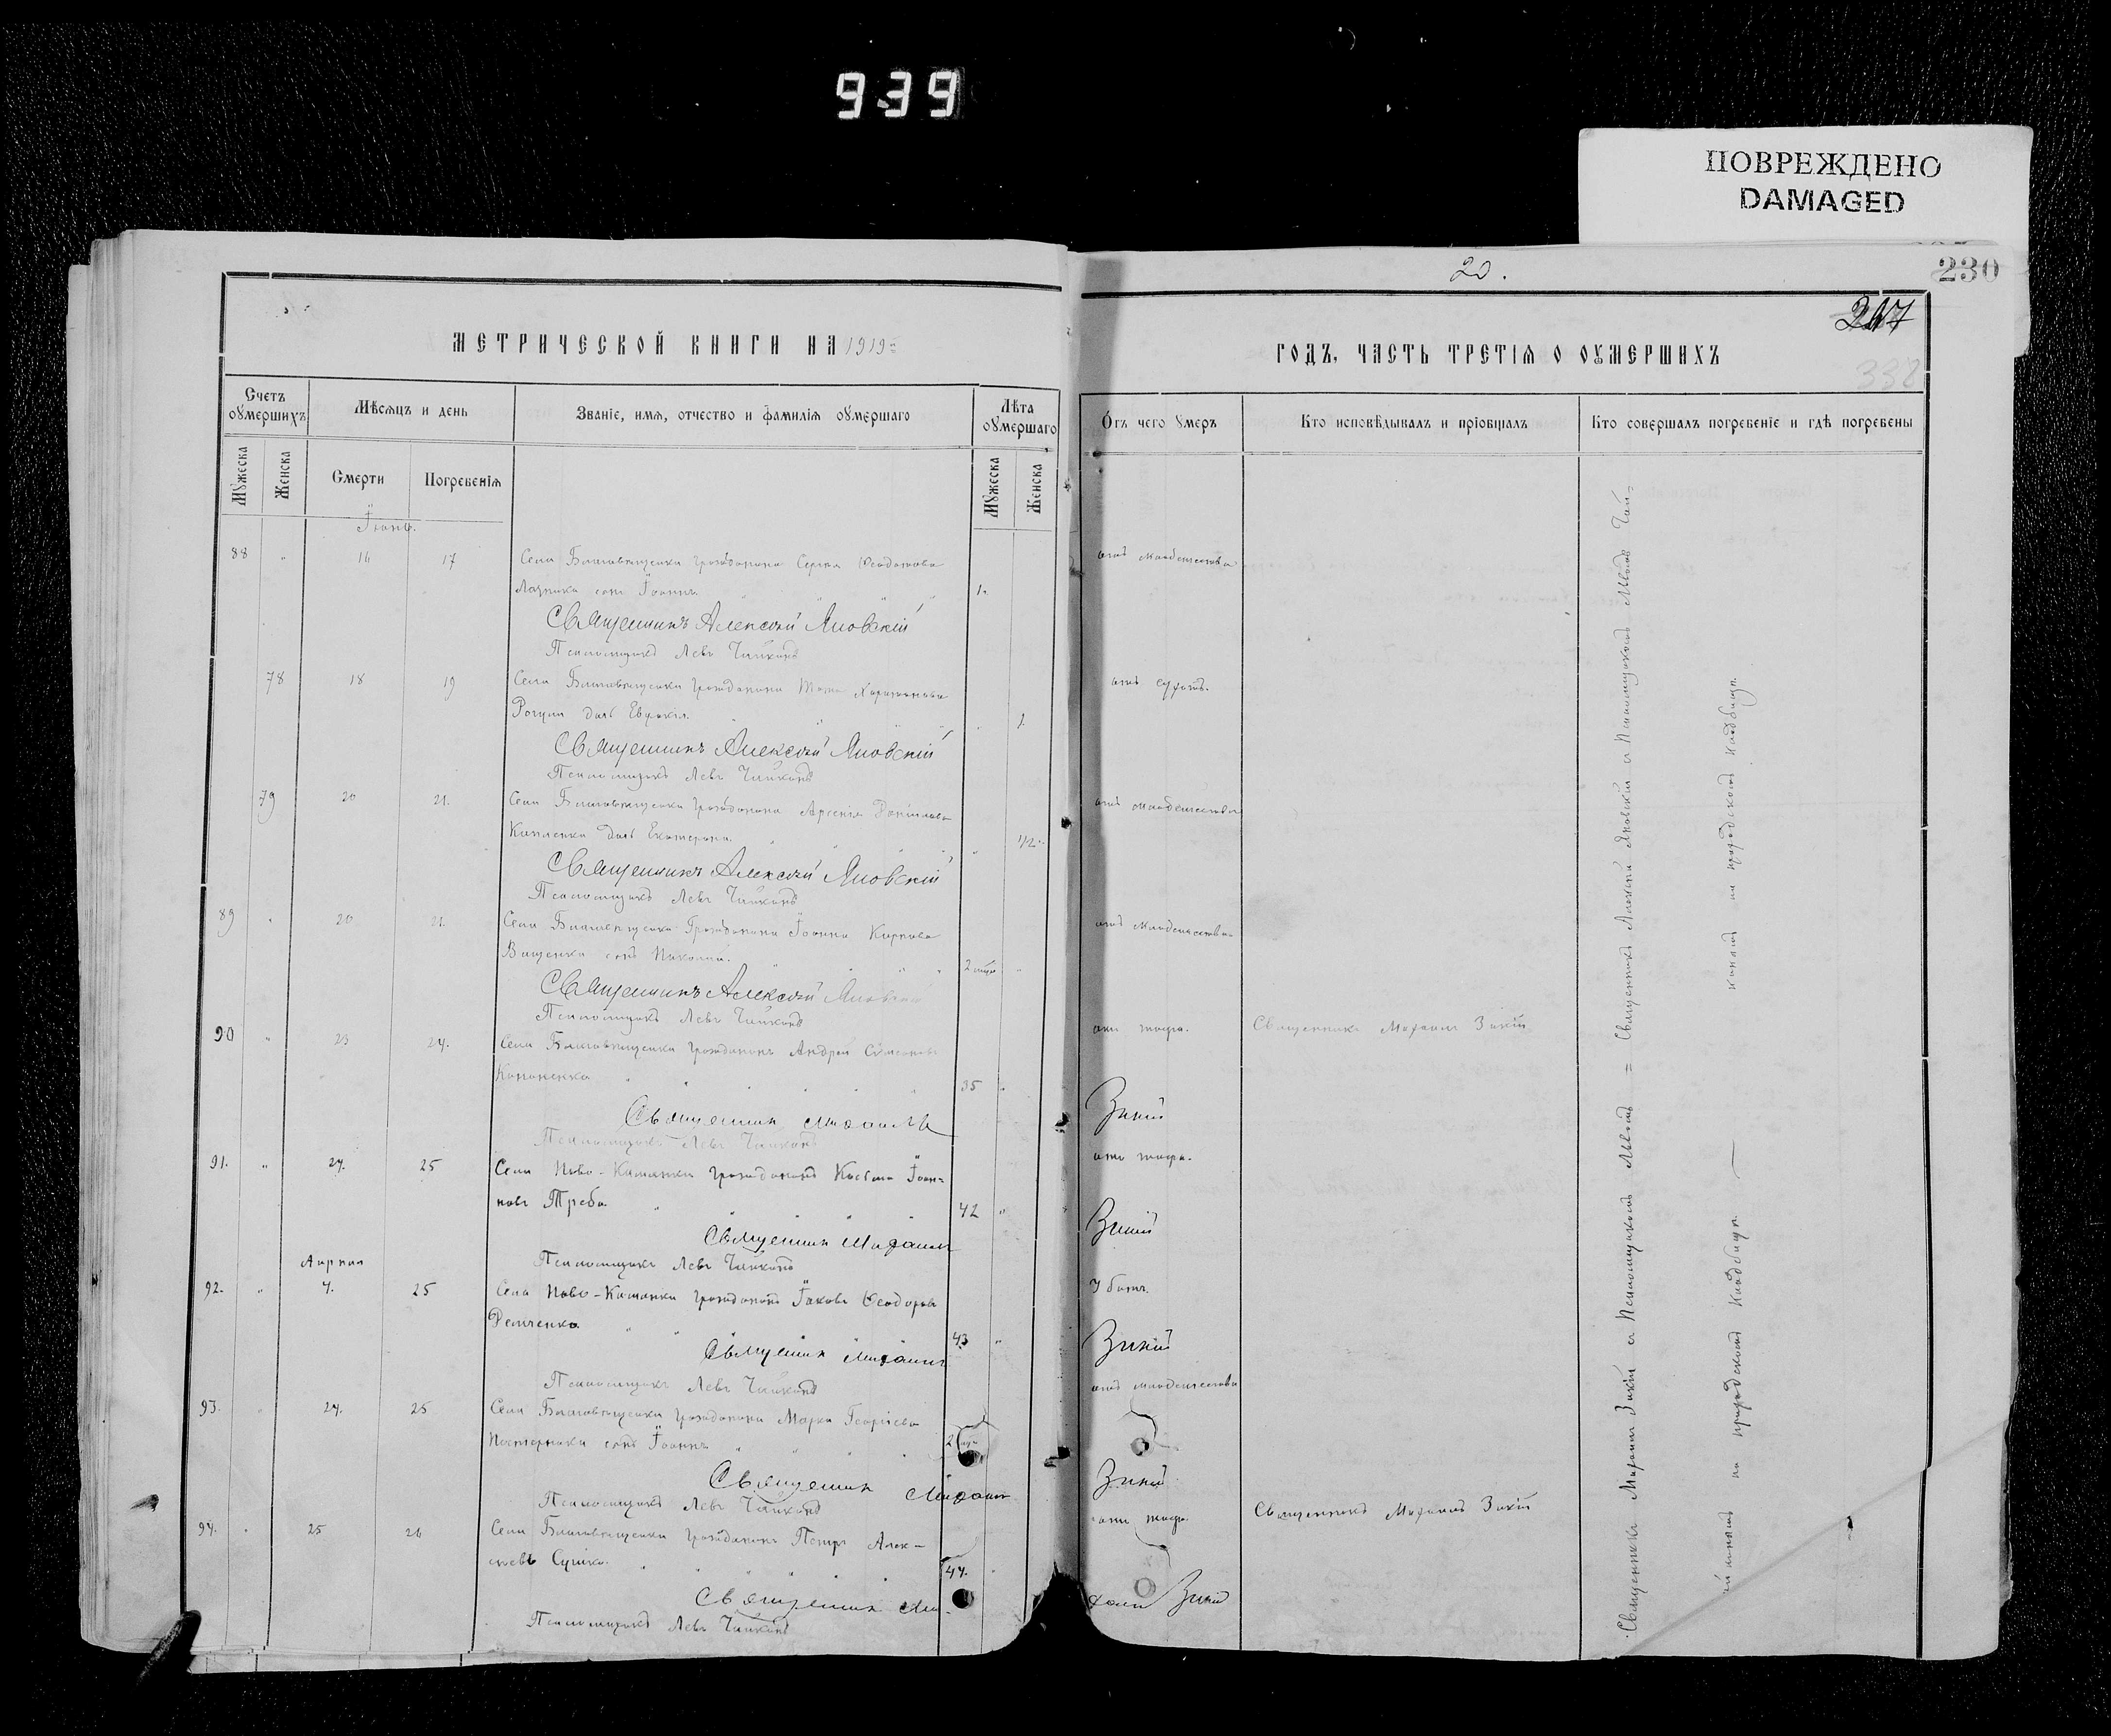 939
ПОВРЕЖДЕНО
DAMAGED
20.
230
217
338
МЕТРИЧЕСКОЙ КНИГИ НА 1919 ГОДЪ, ЧАСТЬ ТРЕТІѦ О ОУМЕРШИХЪ
Счетъ оумершихъ
Мѣсѧцъ и день
Званіе, имѧ, отчество и фамиліѧ оумершаго
Лѣта оумершаго
Отъ чего умеръ
Кто исповѣдывалъ и пріобщалъ
Кто совершалъ погребеніе и гдѣ погребены
Мужеска
Женска
Смерти
Погребеніѧ
Мужеска
Женска
Іюнь.
88 " 16 17 Села Благовѣщенки гражданина Сергія Ѳеодотова отъ младенчества
сынъ Іоаннъ 1.
Священникъ Алексѣй Яновскій
Псаломщикъ Левъ Чайкинъ
78 18 19 Села Благовѣщенки гражданина Харитонова
дочь Евдокія 1
Священникъ Алексѣй Яновскій
Псаломщикъ Левъ Чайкинъ
79 20 21. Села Благовѣщенки гражданина Арсенія Даніилова отъ младенчества
дочь Екатерина. 1/2
Священникъ Алексѣй Яновскій
Псаломщикъ Левъ Чайкинъ
89 " 20 21. Села Благовѣщенки Гражданина Іоанна Карпова отъ младенчества
Ващенки сынъ Николай. 2
Священникъ Алексѣй Яновскій
Псаломщикъ Левъ Чайкинъ
90 " 23 24. Села Благовѣщенки гражданинъ Андрей Симеоновъ отъ тифа. Священникъ Михаилъ Зикій
Кононенко 35 "
Священник Михаилъ Зикій
Псаломщикъ Левъ Чайкинъ
91. " 24. 25 Села Ново-Каменки гражданинъ Косьма Іоан= отъ тифа.
новъ Треба 42 "
Священник Михаил Зикій
Псаломщикъ Левъ Чайкинъ
Апрѣля
92. " 4. 25 Села Ново-Каменки гражданинъ Іаковъ Ѳеодоровъ Убитъ.
Демченко. 43 "
Священник Михаил Зикій
Псаломщикъ Левъ Чайкинъ
93. " 24. 25 Села Благовѣщенки гражданина Марка Георгіева отъ младенчества
сынъ Іоаннъ 2
Священник Михаил Зикій
Псаломщикъ Левъ Чайкинъ
94. " 25 26 Села Благовѣщенки гражданинъ Петръ Алек- отъ тифа Священникъ Михаилъ Зикій
сѣевъ Сушко. 44.
Священник Михаил Зикій
Псаломщикъ Левъ Чайкинъ
Священникъ Михаилъ Зикій съ Псаломщикомъ Львомъ = Священникъ Алексѣй Яновскій съ Псаломщикомъ Львомъ Чай=
на приходскомъ кладбищѣ. —
кинымъ на приходскомъ кладбищѣ.